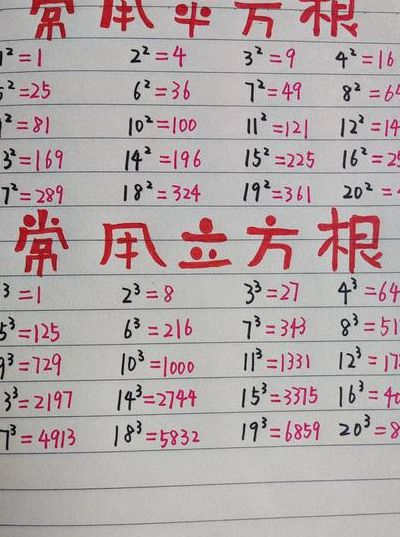 常用平方根
1²=1 2²=4 3²=9 4²=16
5²=25 6²=36 7²=49 8²=64
9²=81 10²=100 11²=121 12²=14
3²=169 14²=196 15²=225 16²=25
7²=289 18²=324 19²=361 20²=
常用立方根
³=1 2³=8 3³=27 4³=64
5³=125 6³=216 7³=343 8³=51
9³=729 10³=1000 11³=1331 12³=17
3³=2197 14³=2744 15³=3375 16³=40
7³=4913 18³=5832 19³=6859 20³=8